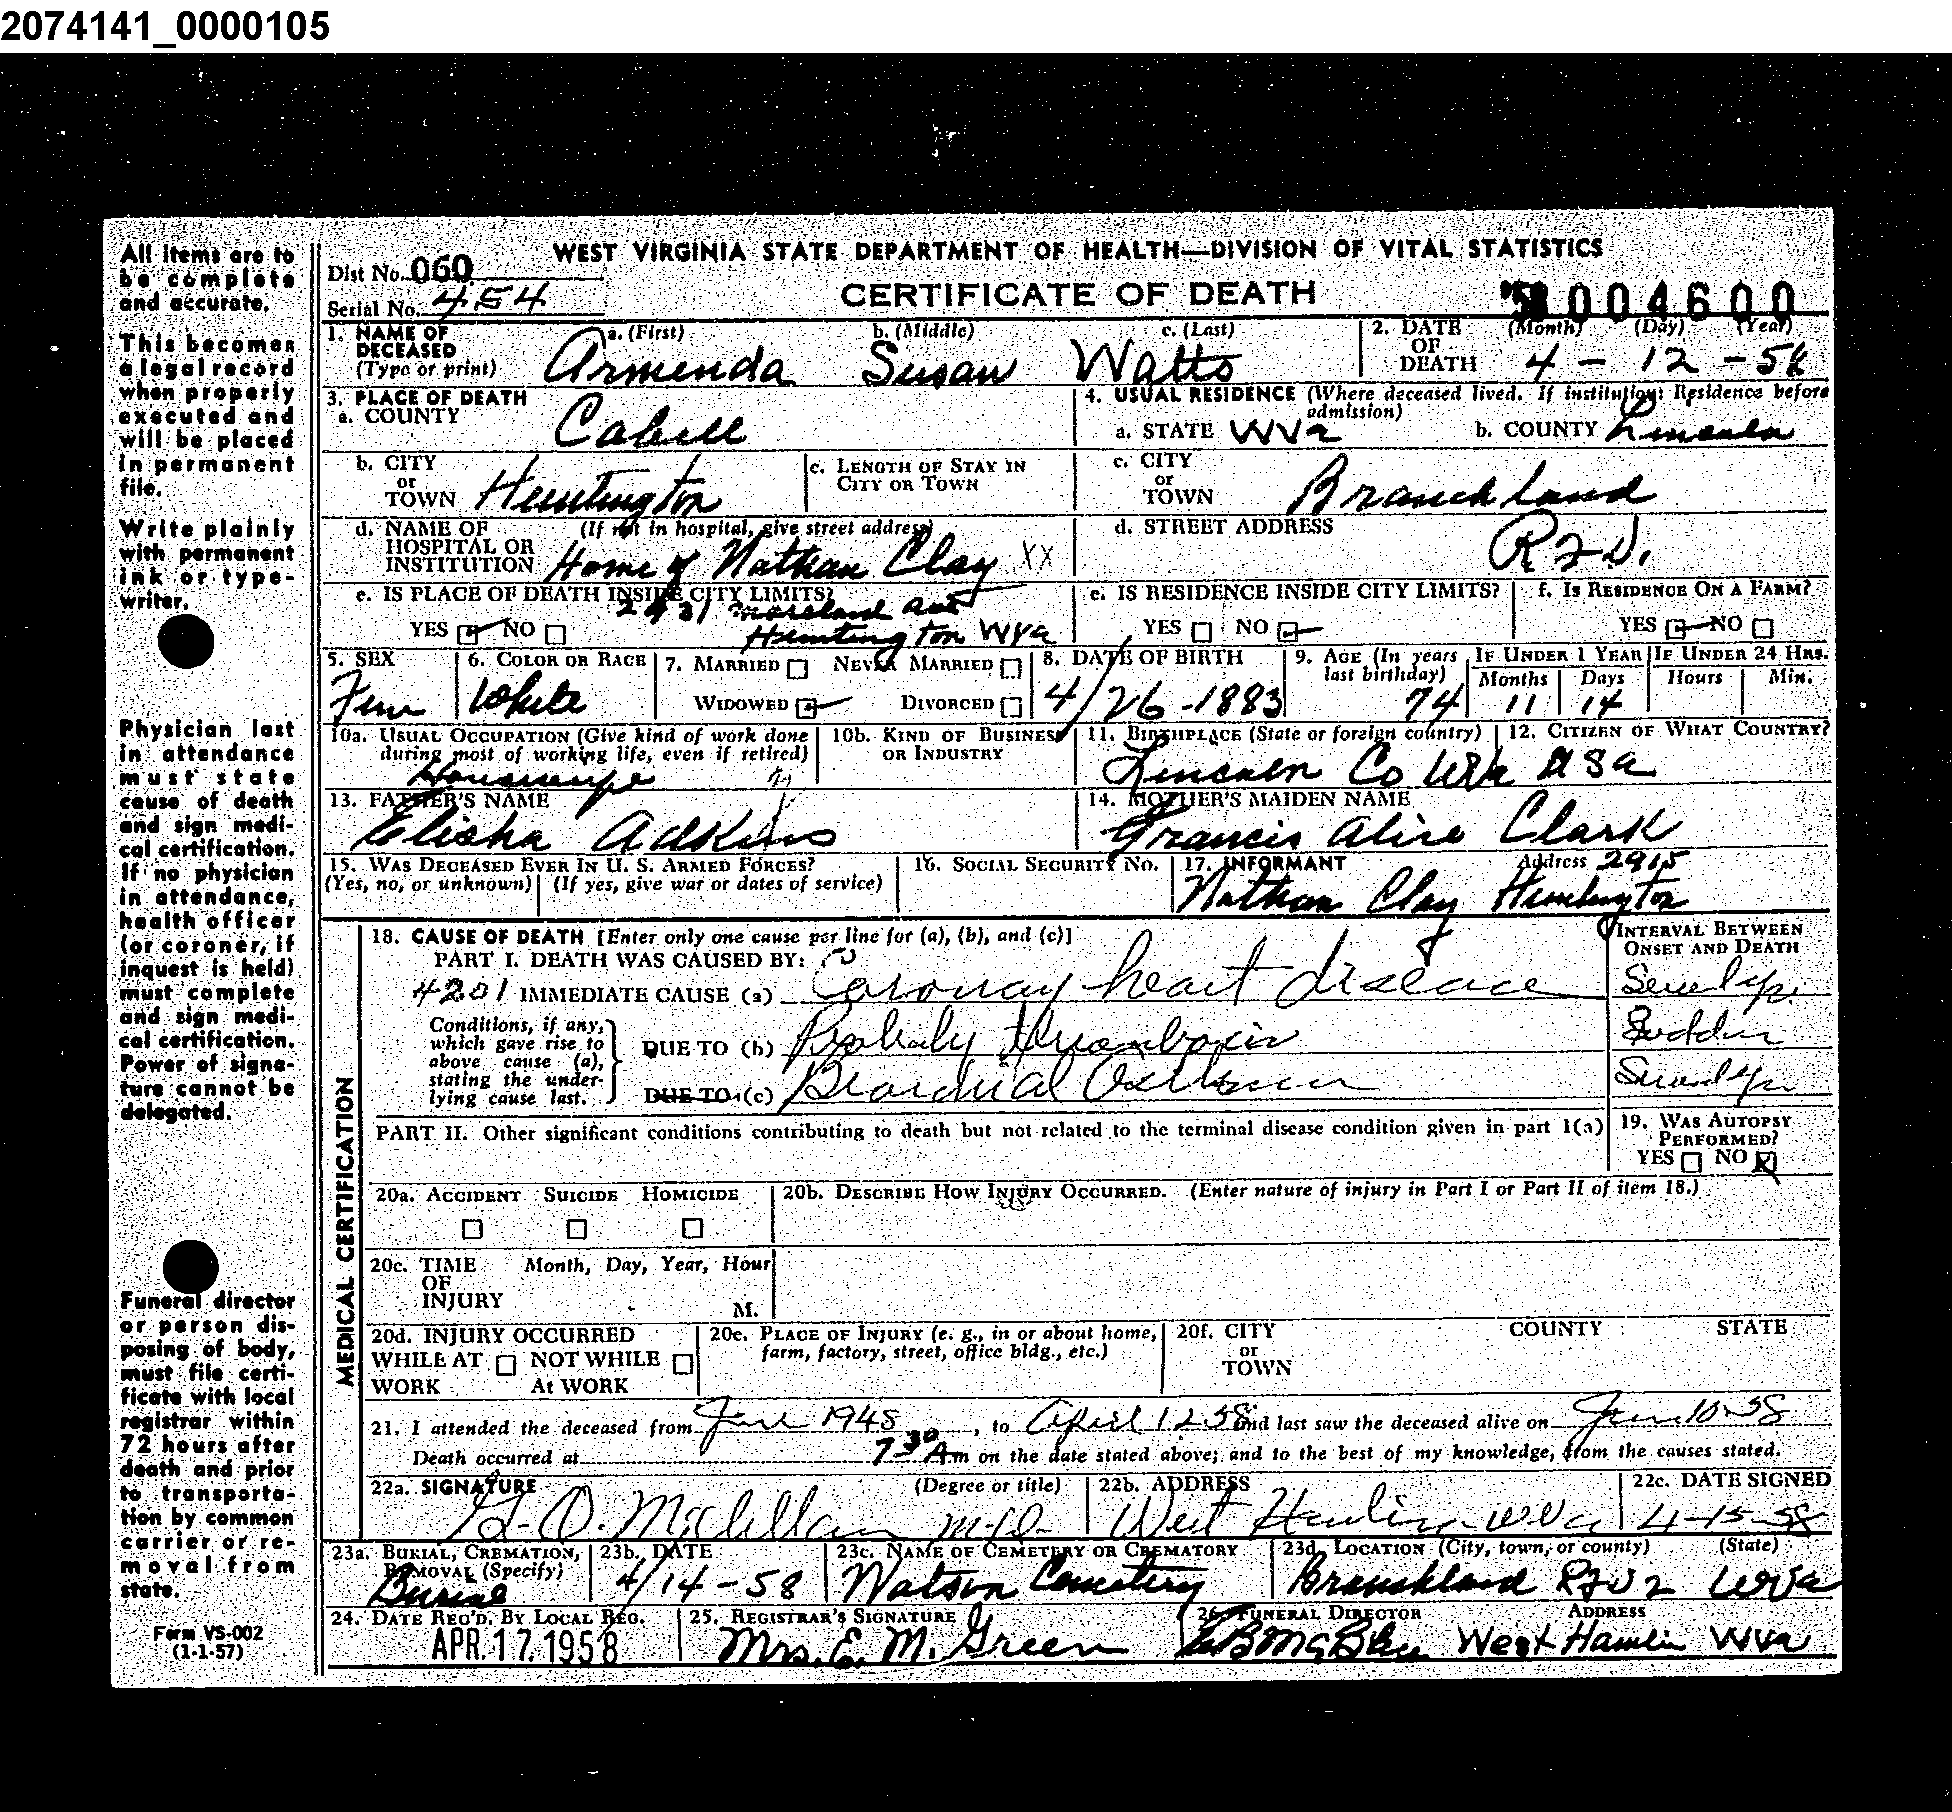 2074141_0000105
WEST VIRGINIA STATE DEPARTMENT OF HEALTH—DIVISION OF VITAL STATISTICS
Dist No. 060
Serial No. 454
CERTIFICATE OF DEATH
004600
1. NAME OF DECEASED (Type or print) a. (First) b. (Middle) c. (Last)
Armenda Susan Watts
2. DATE OF DEATH (Month) (Day) (Year)
4 - 12 - 58
3. PLACE OF DEATH
a. COUNTY Cabell
4. USUAL RESIDENCE (Where deceased lived. If institution: Residence before admission)
a. STATE WVa b. COUNTY Lincoln
b. CITY or TOWN Huntington
c. LENGTH OF STAY IN CITY OR TOWN
c. CITY or TOWN Branchland
d. NAME OF HOSPITAL OR INSTITUTION (If not in hospital, give street address)
Home of Nathan Clay XX
d. STREET ADDRESS
RFD.
e. IS PLACE OF DEATH INSIDE CITY LIMITS?
YES NO
Moreland Ave
Huntington WVa
e. IS RESIDENCE INSIDE CITY LIMITS?
YES NO
f. IS RESIDENCE ON A FARM?
YES NO
5. SEX
Fem
6. COLOR OR RACE
White
7. MARRIED NEVER MARRIED
WIDOWED DIVORCED
8. DATE OF BIRTH
4/26-1883
9. AGE (In years last birthday)
74
IF UNDER 1 YEAR IF UNDER 24 HRS.
Months Days Hours Min.
11 14
10a. USUAL OCCUPATION (Give kind of work done during most of working life, even if retired)
Housewife
10b. KIND OF BUSINESS OR INDUSTRY
11. BIRTHPLACE (State or foreign country)
Lincoln Co WVa
12. CITIZEN OF WHAT COUNTRY?
USA
13. FATHER'S NAME
Elisha Adkins
14. MOTHER'S MAIDEN NAME
Francis Alice Clark
15. WAS DECEASED EVER IN U. S. ARMED FORCES?
(Yes, no, or unknown) (If yes, give war or dates of service)
16. SOCIAL SECURITY NO.
17. INFORMANT Address 2915
Nathan Clay Huntington
MEDICAL CERTIFICATION
18. CAUSE OF DEATH [Enter only one cause per line for (a), (b), and (c)]
INTERVAL BETWEEN ONSET AND DEATH
PART I. DEATH WAS CAUSED BY:
4201 IMMEDIATE CAUSE (a) Coronay heart disease
Conditions, if any, which gave rise to above cause (a), stating the underlying cause last.
DUE TO (b) Probably Thrombosis Sudden
DUE TO (c)
PART II. Other significant conditions contributing to death but not related to the terminal disease condition given in part I(a)
19. WAS AUTOPSY PERFORMED?
YES NO X
20a. ACCIDENT SUICIDE HOMICIDE
20b. DESCRIBE HOW INJURY OCCURRED. (Enter nature of injury in Part I or Part II of item 18.)
20c. TIME OF INJURY Month, Day, Year, Hour
M.
20d. INJURY OCCURRED
WHILE AT WORK NOT WHILE At WORK
20e. PLACE OF INJURY (e. g., in or about home, farm, factory, street, office bldg., etc.)
20f. CITY or TOWN COUNTY STATE
21. I attended the deceased from 1948, to April 12 58 and last saw the deceased alive on 10-58
Death occurred at 7 30 Am on the date stated above; and to the best of my knowledge, from the causes stated.
22a. SIGNATURE (Degree or title)
McClellan M.D.
22b. ADDRESS
West Hamlin WVa
22c. DATE SIGNED
4-15-58
23a. BURIAL, CREMATION, REMOVAL (Specify)
Burial
23b. DATE
4/14-58
23c. NAME OF CEMETERY OR CREMATORY
Watson Cemetery
23d. LOCATION (City, town, or county) (State)
Branchland RFD 2 WVa
24. DATE REC'D. BY LOCAL REG.
APR. 17. 1958
25. REGISTRAR'S SIGNATURE
Mrs. E. M. Green
26. FUNERAL DIRECTOR ADDRESS
West Hamlin WVa
All items are to
be complete
and accurate.
This becomes
a legal record
when properly
executed and
will be placed
in permanent
file.
Write plainly
with permanent
ink or type-
writer.
Physician last
in attendance
must state
cause of death
and sign medi-
cal certification.
If no physician
in attendance,
health officer
(or coroner, if
inquest is held)
must complete
and sign medi-
cal certification.
Power of signa-
ture cannot be
delegated.
Funeral director
or person dis-
posing of body,
must file certi-
ficate with local
registrar within
72 hours after
death and prior
to transporta-
tion by common
carrier or re-
moval from
state.
Form VS-002
(1-1-57)